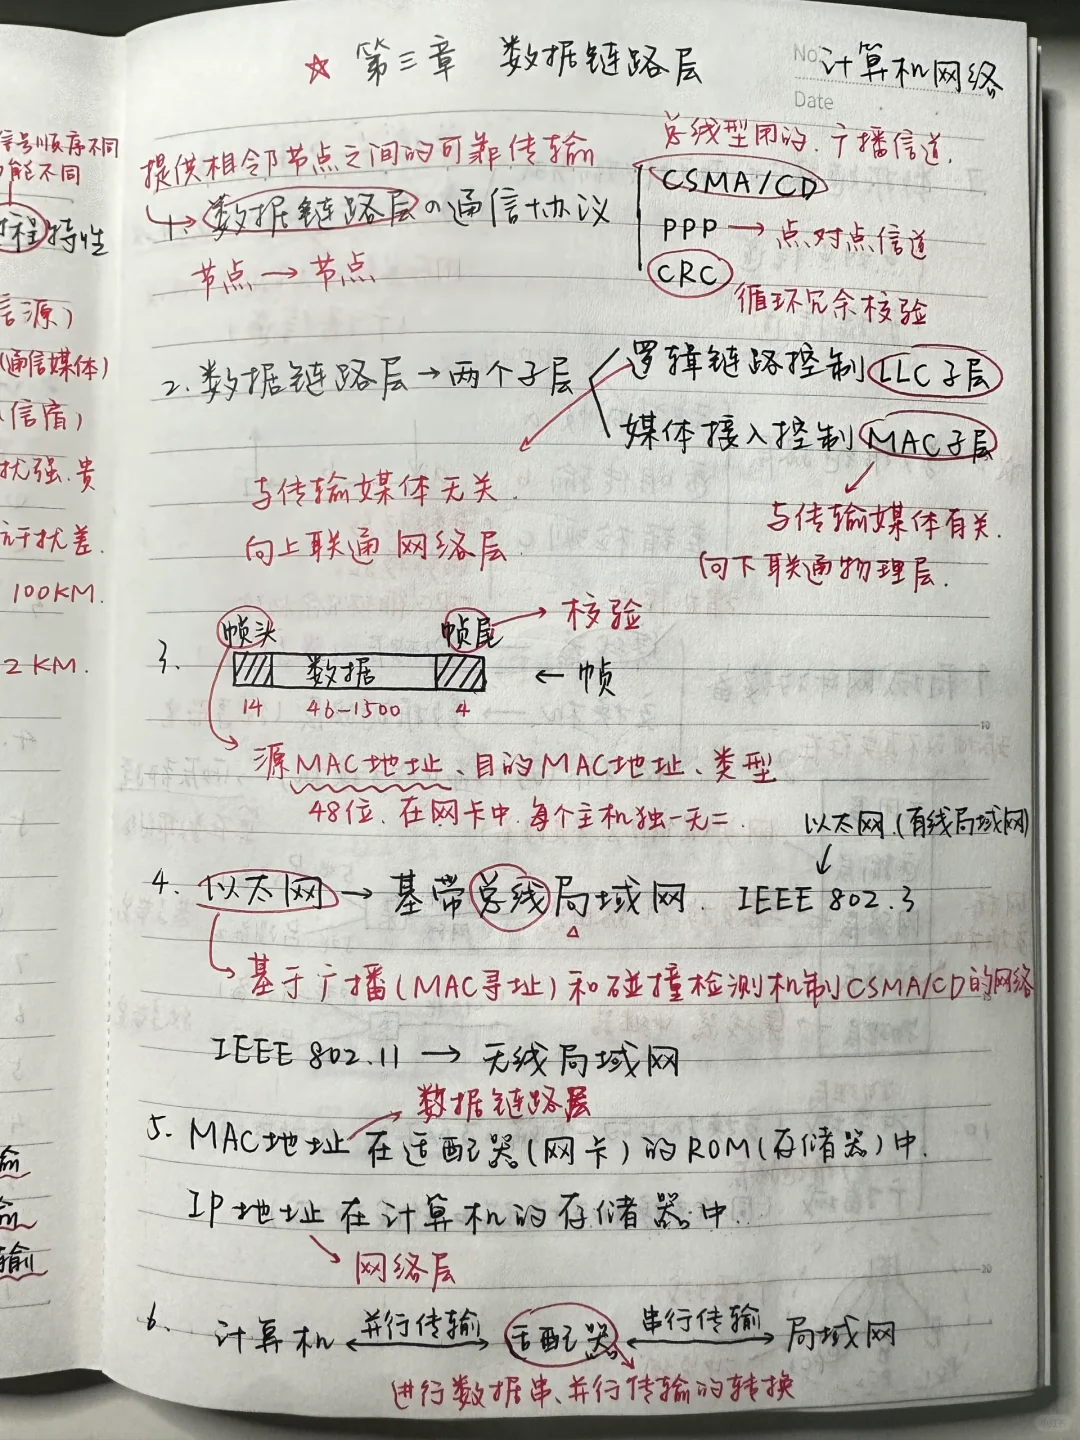 ☆ 第三章 数据链路层
No. 计算机网络
Date
提供相邻节点之间的可靠传输
总线型用的.广播信道.
CSMA/CD
1. 数据链路层的通信协议
PPP → 点对点信道
节点 → 节点
CRC
循环冗余校验
2. 数据链路层 → 两个子层
逻辑链路控制 LLC子层
媒体接入控制 MAC子层
与传输媒体无关.
向上联通网络层.
与传输媒体有关.
向下联通物理层.
3. 帧头 帧尾 → 校验
数据 ← 帧
14 46-1500 4
源MAC地址、目的MAC地址、类型
48位.在网卡中.每个主机独一无二.
以太网.(有线局域网)
4. 以太网 → 基带总线局域网. IEEE 802.3
基于广播(MAC寻址)和碰撞检测机制CSMA/CD的网络
IEEE 802.11 → 无线局域网
数据链路层
5. MAC地址在适配器(网卡)的ROM(存储器)中.
IP地址在计算机的存储器中.
网络层
6. 计算机 ↔ 并行传输 适配器 ↔ 串行传输 局域网
进行数据串、并行传输的转换
信号顺序不同
能不同
程特性
信源)
(通信媒体)
信宿)
扰强.贵
抗干扰差.
100KM.
2KM.
输
输
输